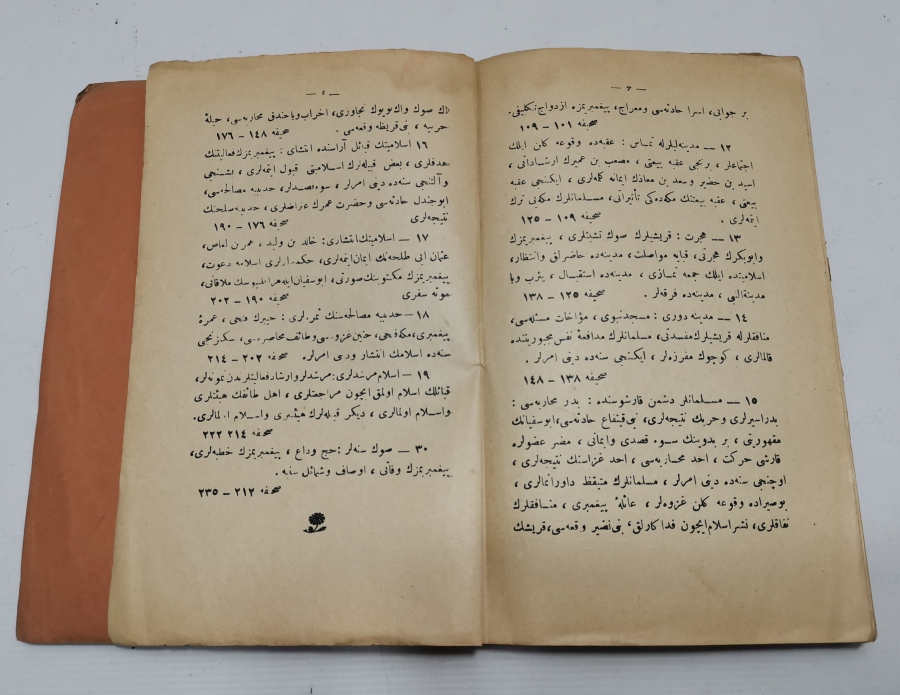 — ٣ —
بر جوابی، اسرا حادثه‌سی ومعراج، پیغمبریمزه ازدواج تکلیفی.
صحیفه ١٠١ – ١٠٩
١٢ — مدینه‌لیلرله تماس : عقبه‌ده وقوعه کلن ایلك
اجتماعلر، برنجی عقبه بیعتی، مصعب بن عمیرك ارشاداتی،
اسید بن حضیر وسعد بن معاذك ایمانه کله‌لری، ایکنجی عقبه
بیعتی، عقبه بیعتنك مکه‌ده‌کی تأثیراتی، مسلمانلرك مکه‌یی ترك
ایتمه‌لری. صحیفه ١٠٩ – ١٢٥
١٣ — هجرت : قریشیلرك صوك تشبثلری، پیغمبریمزك
وابوبکرك هجرتی، قبایه مواصلت، مدینه‌ده حاضرلق وانتظار،
اسلامیتده ایلك جمعه نمازی، مدینه‌ده استقبال، یثرب ویا
مدینة‌النبی، مدینه‌ده فرقه‌لر. صحیفه ١٢٥ – ١٣٨
١٤ — مدینه دوری : مسجدنبوی، مؤاخات مسئله‌سی،
منافقلرله قریشیلرك مفسدتی، مسلمانلرك مدافعهٔ نفس مجبوریتنده
قالمالری، کوچوك مفرزه‌لر، ایکنجی سنه‌ده دینی امرلر.
صحیفه ١٣٨ – ١٤٨
١٥ — مسلمانلر دشمن قارشوسنده : بدر محاربه‌سی :
بدراسیرلری وحربك نتیجه‌لری، بنی‌قینقاع حادثه‌سی، ابوسفیانك
مقهوریتی، بر بدوینك سوء قصدی وایمانی، مضر عضولره
قارشی حرکت، احد محاربه‌سی، احد غزاسنك نتیجه‌لری،
اوچنجی سنه‌ده دینی امرلر، مسلمانلرك متیقظ داورانمالری،
بوصیراده وقوعه کلن غزوه‌لر، عائلهٔ پیغمبری، منافقلرك
نفاقلری، نشر اسلام ایچون فداکارلق، بنی‌نضیر وقعه‌سی، قریشك
— ٤ —
اك صوك واك بویوك تجاوزی، احزاب ویاخندق محاربه‌سی، حیلهٔ
حربیه، بنی قریظه وقعه‌سی. صحیفه ١٤٨ – ١٧٦
١٦ اسلامیتك قبائل آراسنده انتشای : پیغمبریمزك فعالیتنك
هدفلری، بعض قبیله‌لرك اسلامیتی قبول ایتمه‌لری، بشنجی
وآلتنجی سنه‌ده دینی امرلر، سوءقصدلر، حدیبیه مصالحه‌سی،
ابوجندل حادثه‌سی وحضرت عمرك اعتراضلری، حدیبیه صلحنك
نتیجه‌لری صحیفه ١٧٦ – ١٩٠
١٧ — اسلامیتك انتشاری: خالد بن ولید، عمر بن العاص،
عثمان ابن طلحه‌نك ایمان ایتمه‌لری، حکمدارلری اسلامه دعوت،
پیغمبریمزك مکتوبنك صورتی، ابوسفیان ایله هراقلیوسك ملاقاتی،
موته سفری صحیفه ١٩٠ – ٢٠٢
١٨ — حدیبیه مصالحه‌سنك ثمره‌لری : خیبرك فتحی، عمرهٔ
پیغمبری، مکه فتحی، حنین غزوه‌سی وطائف محاصره‌سی، سکزنجی
سنه‌ده اسلامك انتشار ودینی امرلر. صحیفه ٢٠٢ – ٢١٤
١٩ — اسلام مرشدلری : مرشدلر وارشاد فعالیتلرندن نمونه‌لر،
قبائلك اسلام اولمق ایچون مراجعتلری، اهل طائفك هیئتلری
واسلام اولمالری، دیکر قبیله‌لرك هیئتلری واسلام اولمالری.
صحیفه ٢١٤ ٢٢٢
٣٠ — صوك سنه‌لر : حج وداع، پیغمبریمزك خطبه‌لری،
پیغمبریمزك وفاتی، اوصاف وشمائل سنیه.
صحیفه ٢١٢ – ٢٣٥